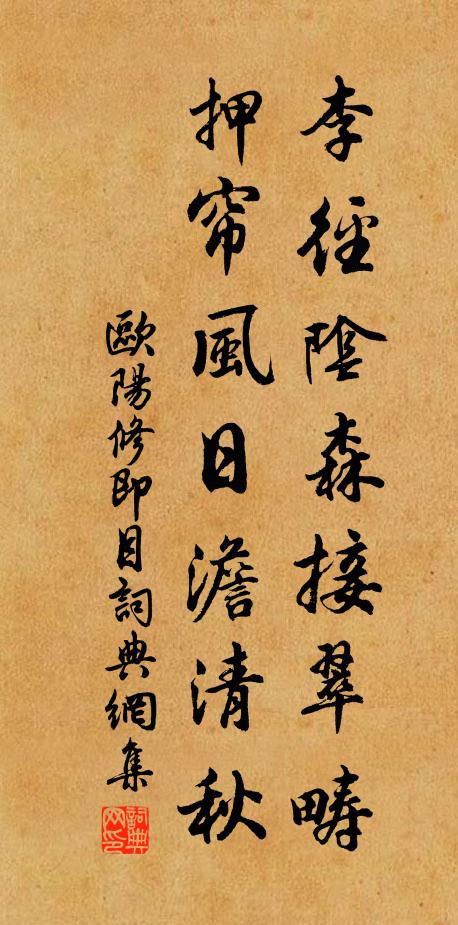 李徑陰森接翠疇
押帘風日澹清秋
歐陽修即目詞典網集
詞典網印